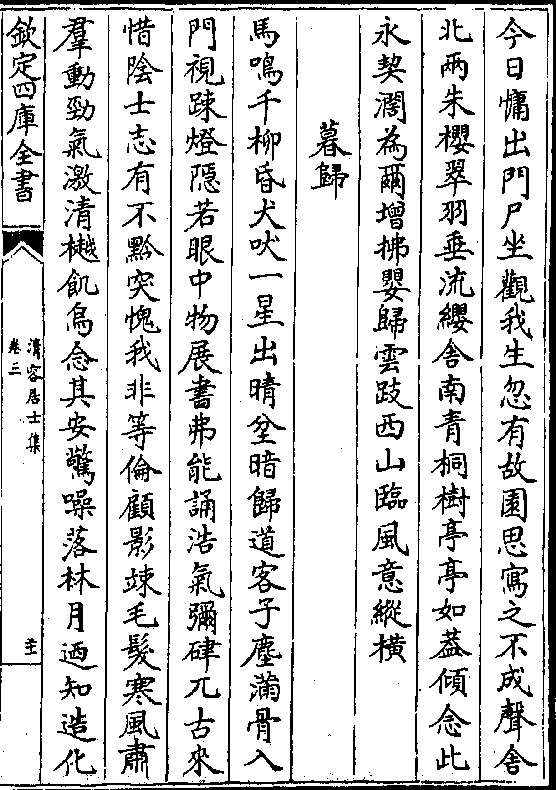 今日慵出門尸坐觀我生忽有故園思寫之不成聲舍
北兩朱櫻翠羽垂流纓舍南青桐樹亭亭如葢傾念此
永契濶為爾增拂嬰歸雲跂西山臨風意縱橫
暮歸
馬鳴千柳昏犬吠一星出晴坌暗歸道客子塵滿骨入
門視踈燈隠若眼中物展書弗能誦浩氣彌硉兀古來
惜陰士志有不黔突愧我非等倫顧影竦毛髮寒風肅
羣動勁氣激清樾飢烏念其安驚噪落林月迺知造化
欽定四庫全書
清容居士集
卷三